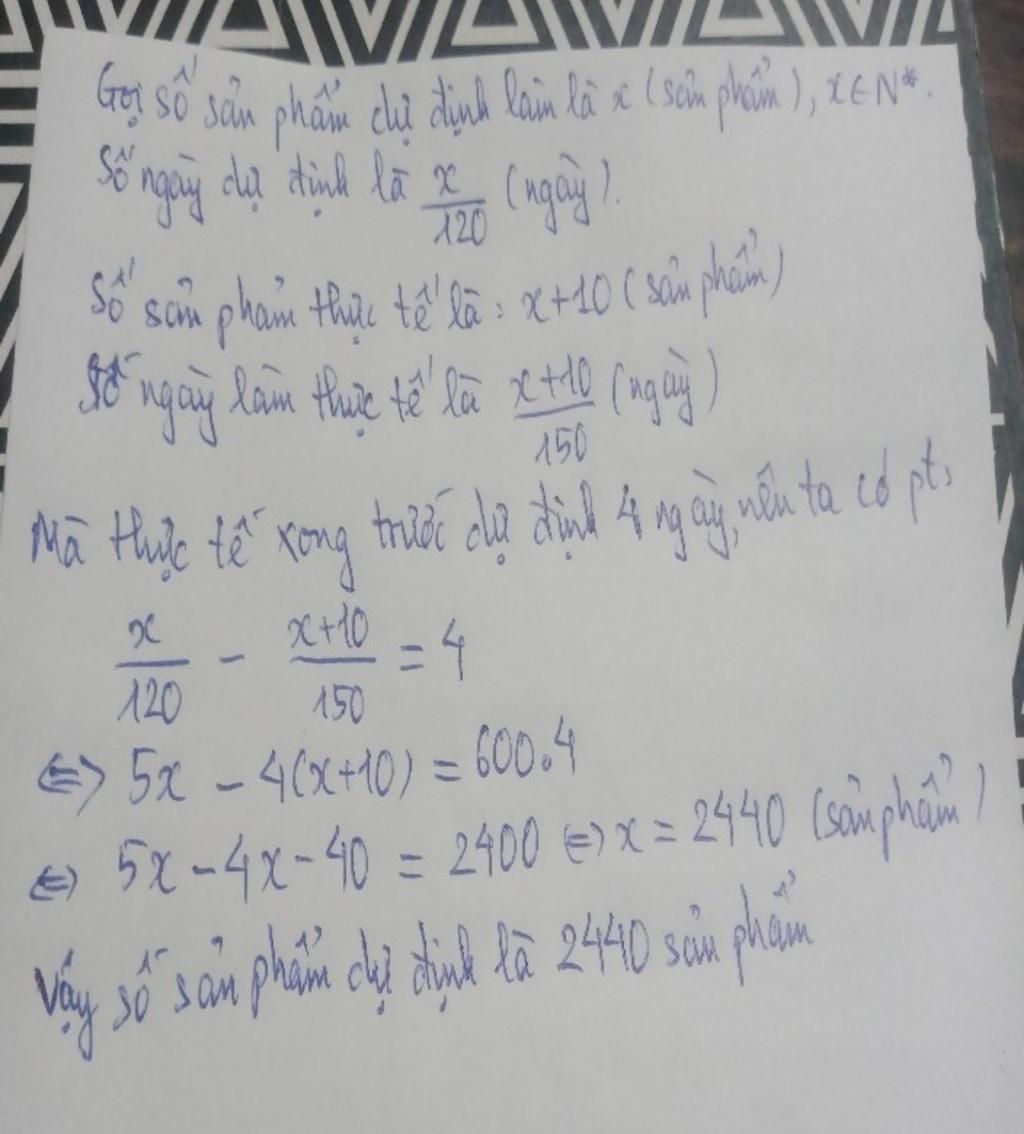 Gọi số sản phẩm dự định làm là x (sản phẩm), x ∈ N*.
Số ngày dự định là x/120 (ngày).
Số sản phảm thực tế là: x+10 (sản phẩm)
Số ngày làm thực tế là x+10/150 (ngày)
Mà thực tế xong trước dự định 4 ngày, nên ta có pt:
x/120 - x+10/150 = 4
⇔ 5x - 4(x+10) = 600.4
⇔ 5x - 4x - 40 = 2400 ⇔ x = 2440 (sản phẩm)
Vậy số sản phẩm dự định là 2440 sản phẩm